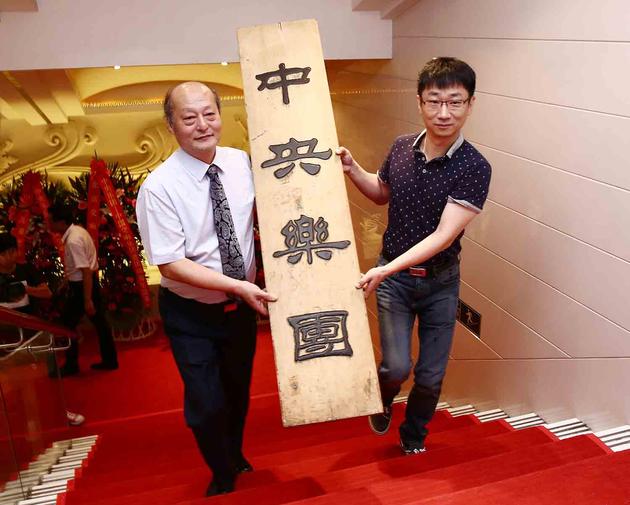 中央樂團